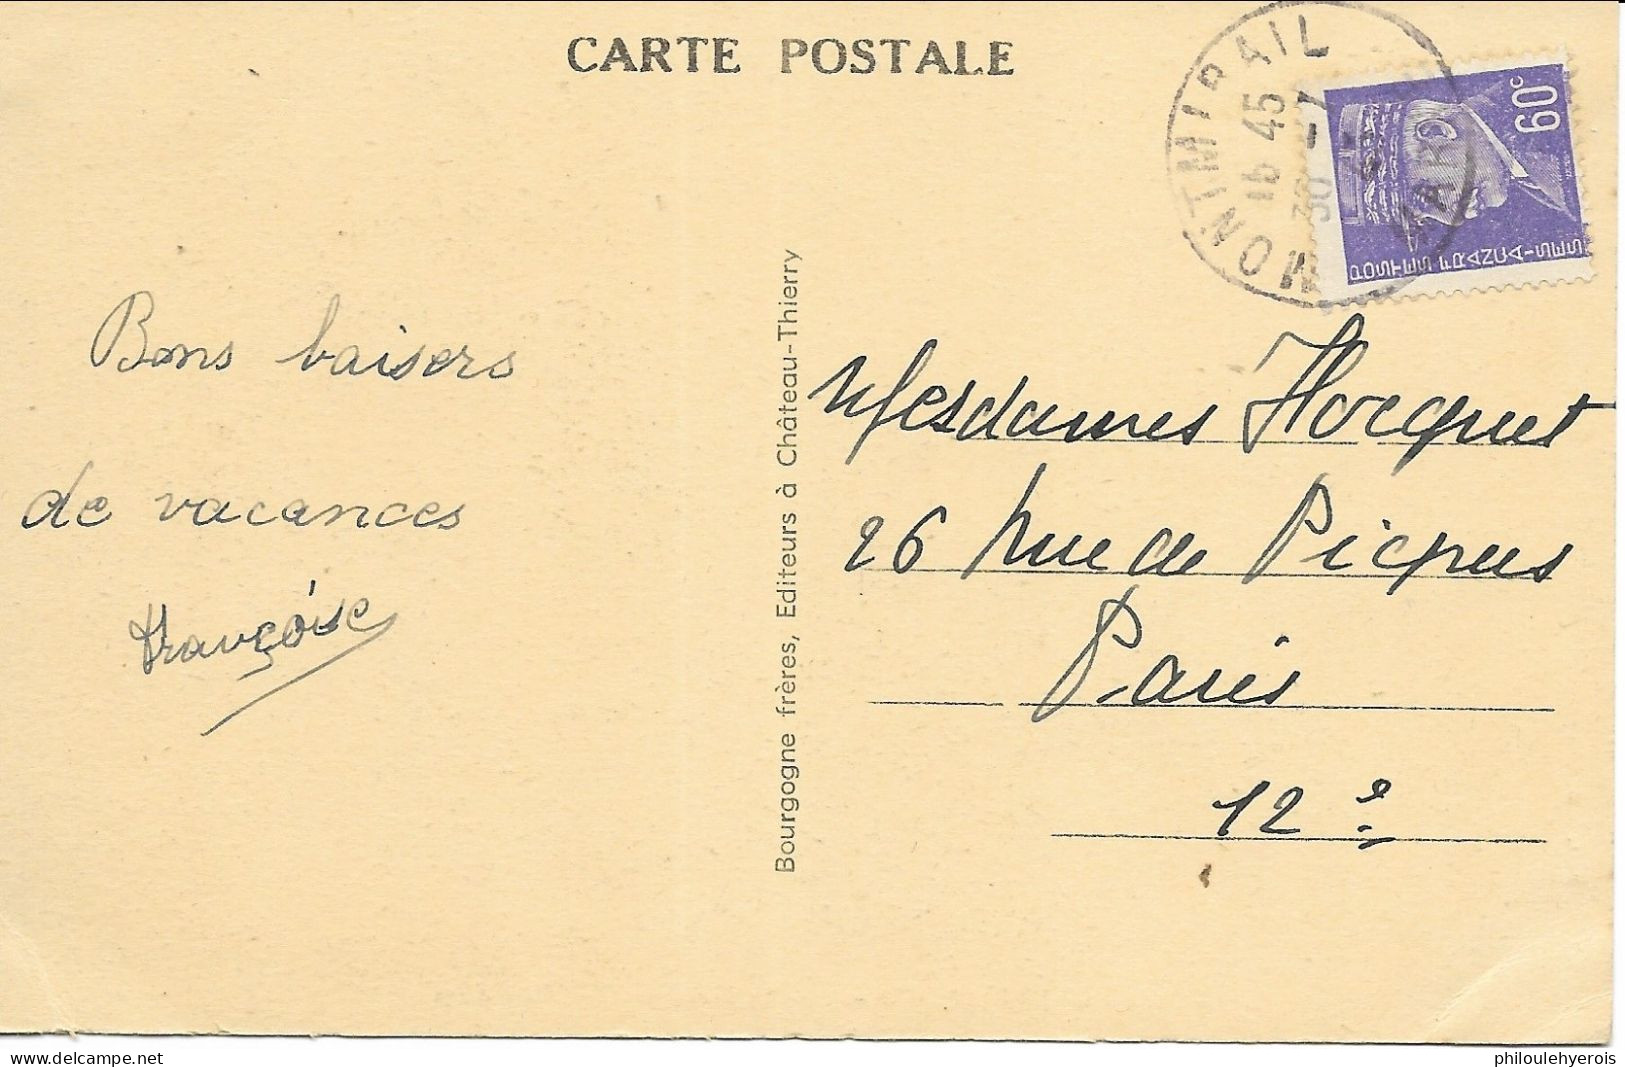 CARTE POSTALE
MONTMIRAIL
16 45
30 -7
MARNE
60c
POSTES FRANÇAISES
Bons baisers
de vacances
Françoise
Bourgogne frères, Editeurs à Château-Thierry
Mesdames Hocquet
26 Rue de Picpus
Paris
12e
delcampe.net
philoulehyerois